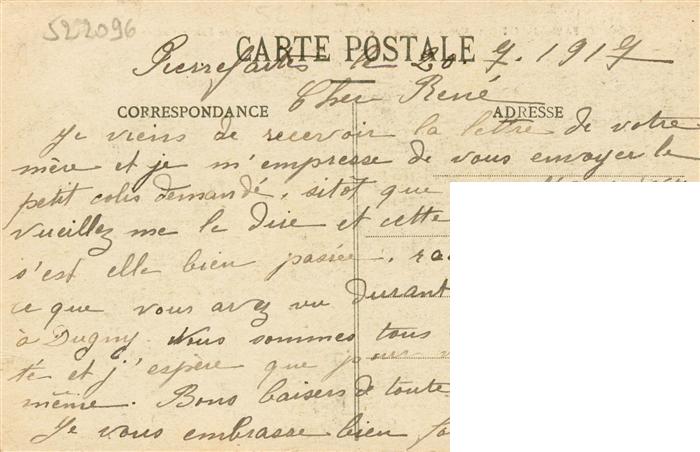 522096
CARTE POSTALE
Pierrefitte le 20. 7. 1917
Cher René
CORRESPONDANCE ADRESSE
Je viens de recevoir la lettre de votre
mère et je m'empresse de vous envoyer le
petit colis demandé, sitôt que
vueillez me le dire et cette
s'est elle bien passée,
ce que vous avez vu durant
à Dugny. Nous sommes tous
té et j'espère que pour
même. Bons baisers de toute
Je vous embrasse bien